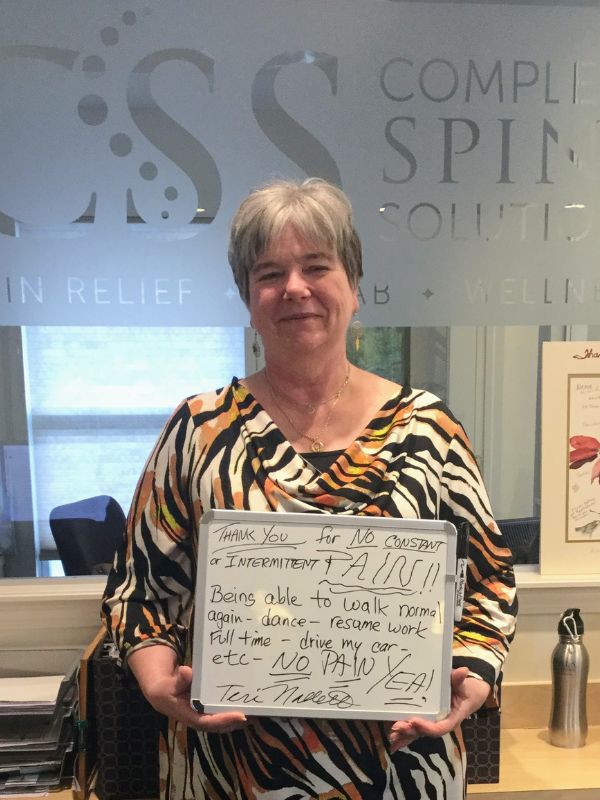 CSS
COMPLE
SPIN
SOLUTIO
IN RELIEF ✦ AB ✦ WELLNE
Tha
THANK YOU for NO CONSTANT
or INTERMITTENT PAIN!!
Being able to walk normal
again - dance - resume work
Full time - drive my car -
etc - NO PAIN YEA!
Teri